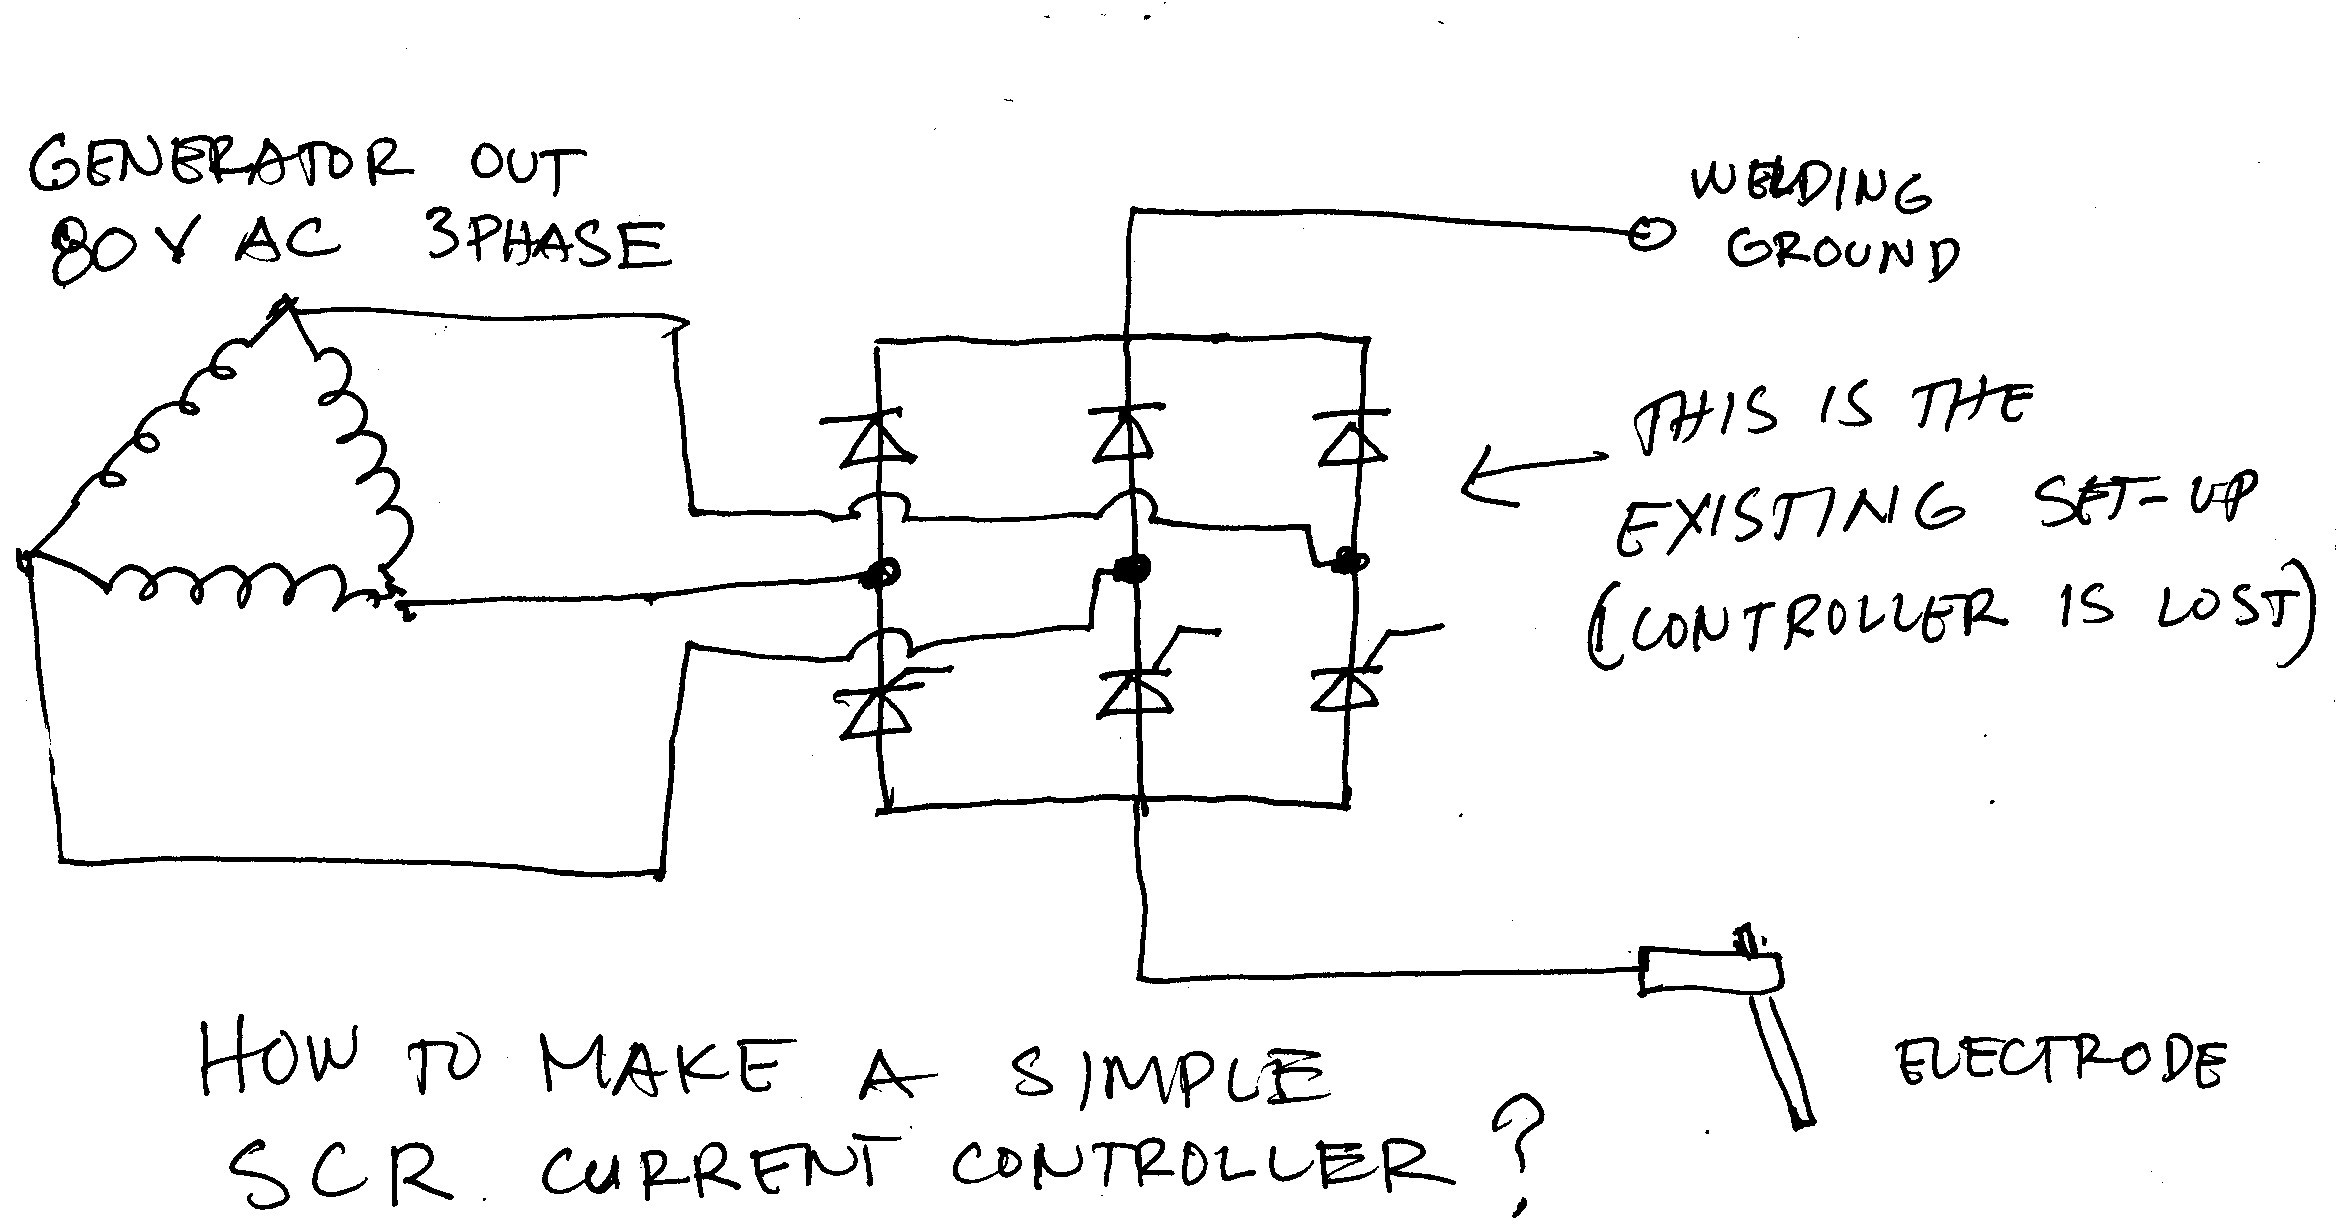 GENERATOR OUT
80V AC 3PHASE
WELDING
GROUND
THIS IS THE
EXISTING SET-UP
(CONTROLLER IS LOST)
ELECTRODE
HOW TO MAKE A SIMPLE
SCR CURRENT CONTROLLER?